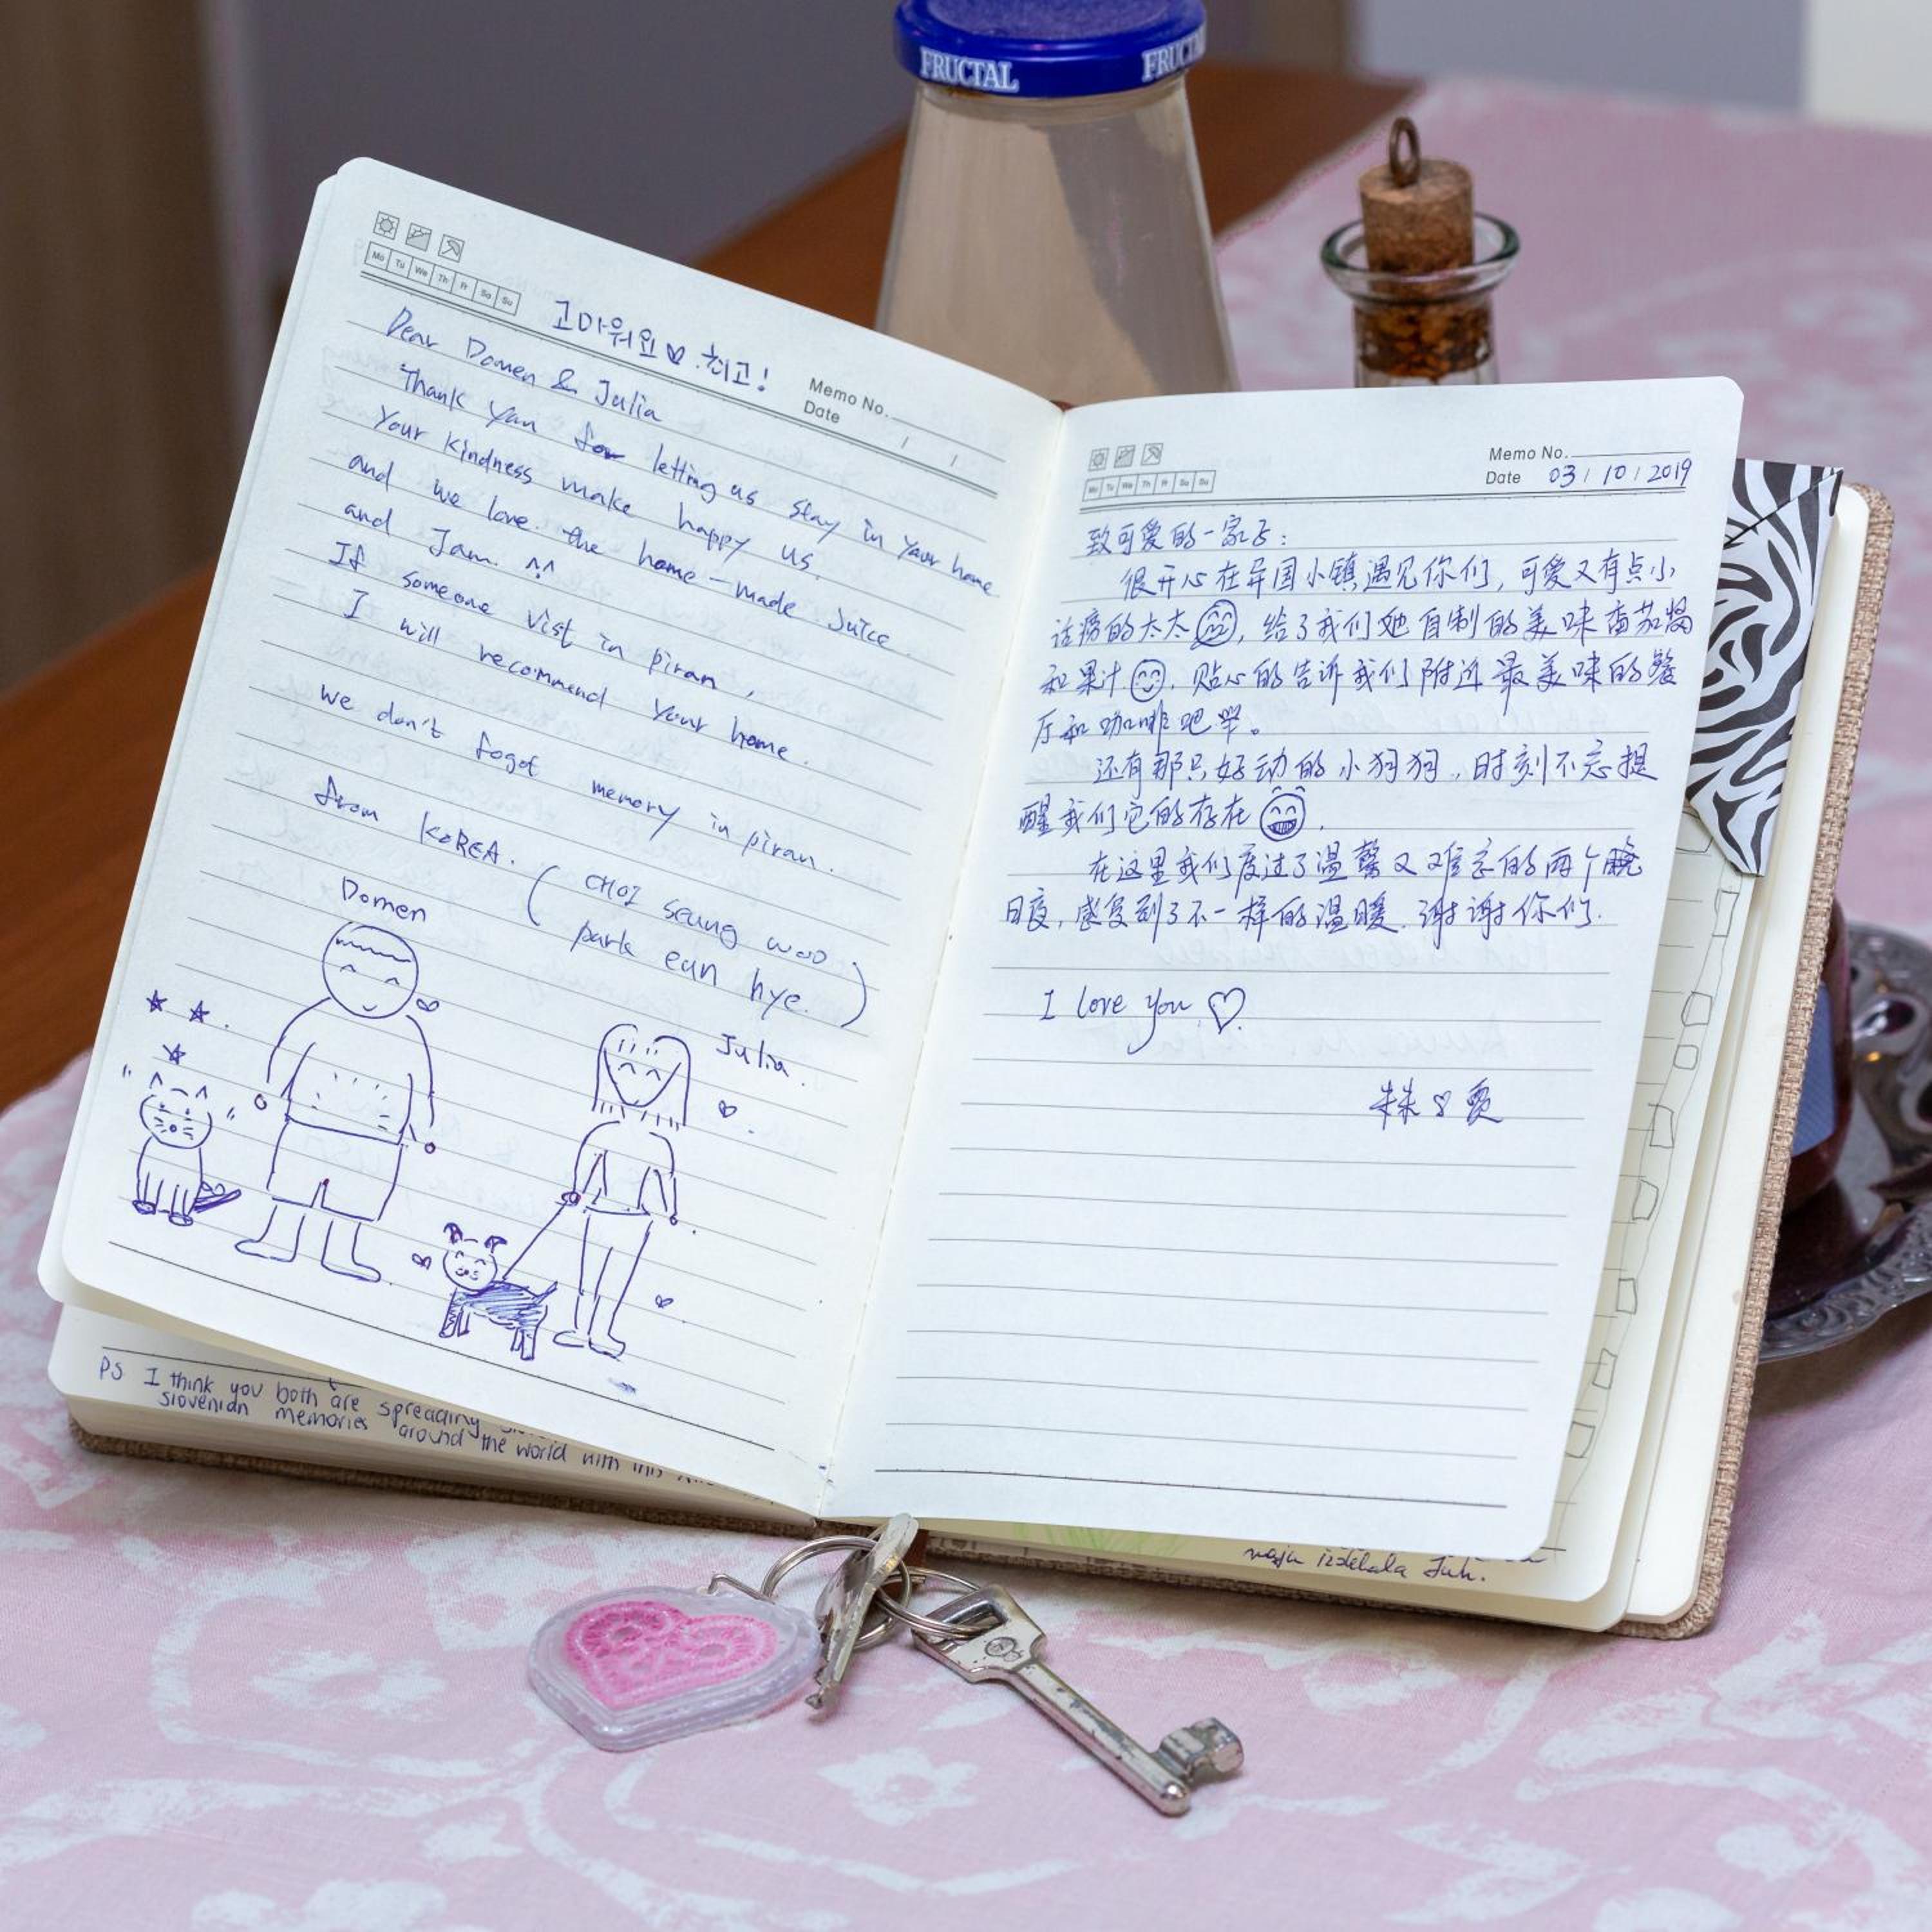 FRUCTAL
FRUCTAL
Mo Tu We Th Fr Sa Su
고마워요♡ 최고!
Memo No.
Date / /
Dear Domen & Julia
Thank you for letting us stay in your home
Your kindness make happy us.
and we love the home-made Juice
and Jam. ^^
If someone vist in piran,
I will recommend your home.
we don't fogot memory in piran.
from KOREA. (CHOI seung woo
park eun hye.)
Domen
Julia.
PS I think you both are spreading
slovenian memories around the world with this
Mo Tu We Th Fr Sa Su
Memo No.
Date 03/10/2019
致可爱的一家子:
很开心在异国小镇遇见你们,可爱又有点小
话痨的太太,给了我们她自制的美味番茄酱
和果汁,贴心的告诉我们附近最美味的餐
厅和咖啡吧等。
还有那只好动的小狗狗,时刻不忘提
醒我们它的存在.
在这里我们度过了温馨又难忘的两个晚
日夜,感受到了不一样的温暖.谢谢你们.
I love you ♡
naju izdelala Juh.